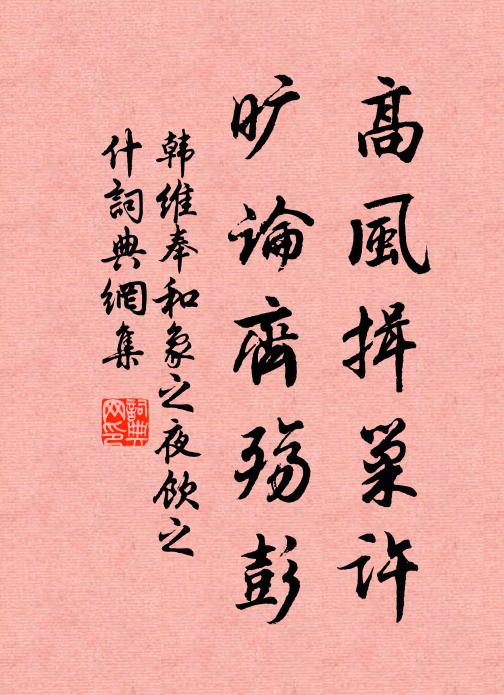 高風揖巢許
旷論齊殤彭
韩维奉和象之夜飲之
什詞典網集
詞典
网印